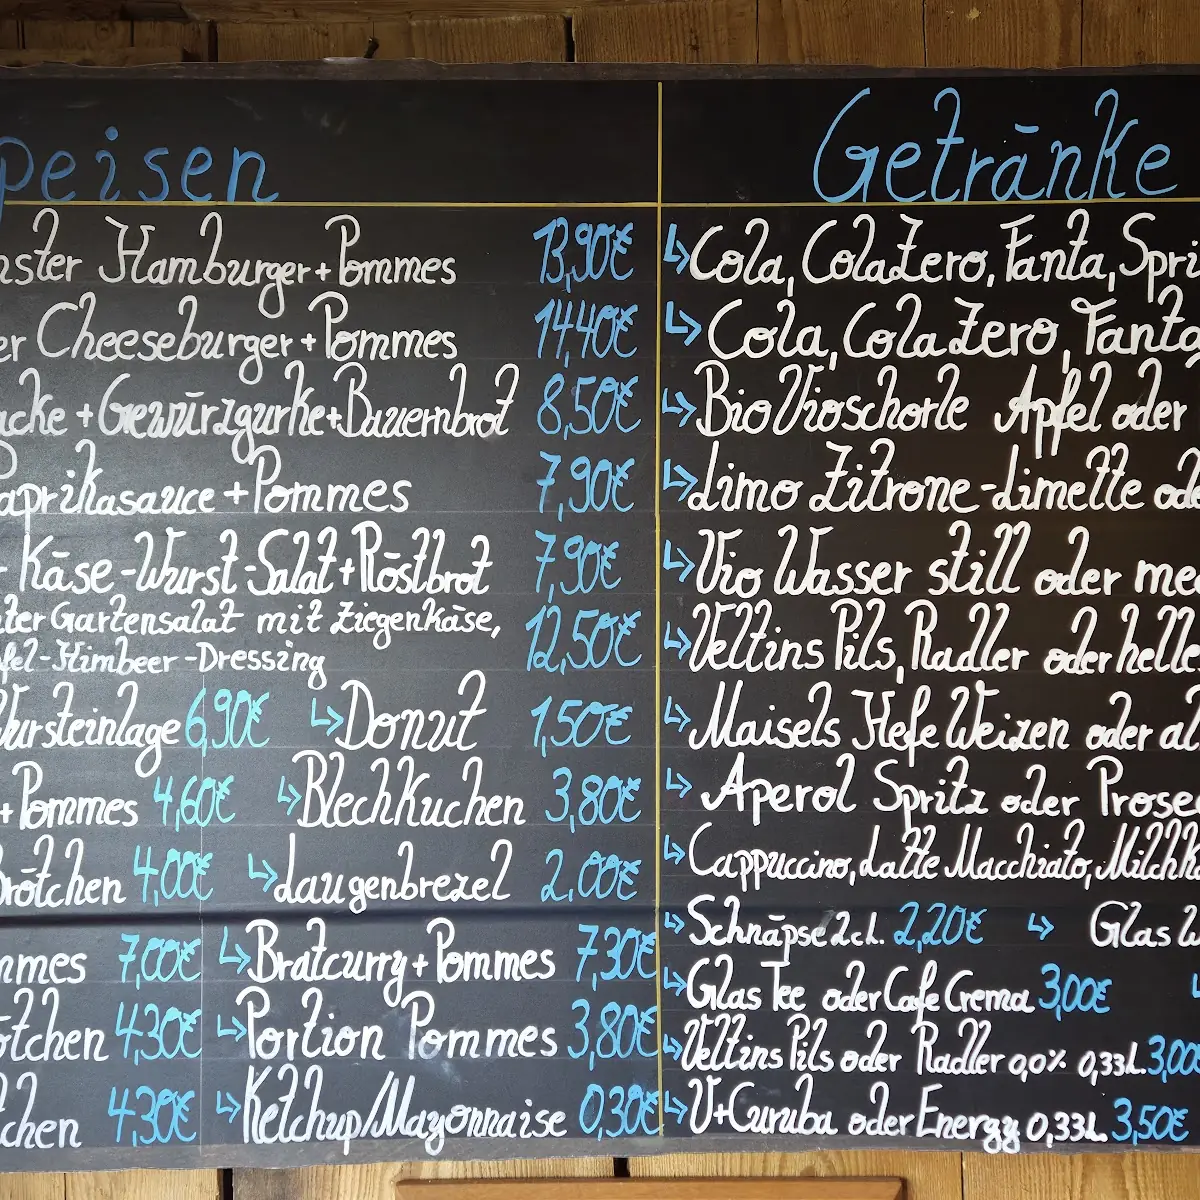 peisen
nster Hamburger + Pommes 13,90€
er Cheeseburger + Pommes 14,40€
acke + Gewürzgurke + Bauernbrot 8,50€
aprikasauce + Pommes 7,90€
- Käse-Wurst-Salat + Röstbrot 7,90€
ter Gartensalat mit Ziegenkäse, 12,50€
fel-Himbeer-Dressing
Wursteinlage 6,90€ ↳ Donut 1,50€
+ Pommes 4,60€ ↳ Blechkuchen 3,80€
Brötchen 4,00€ ↳ Laugenbrezel 2,00€
mmes 7,00€ ↳ Bratcurry + Pommes 7,30€
ötchen 4,30€ ↳ Portion Pommes 3,80€
tchen 4,30€ ↳ Ketchup/Mayonnaise 0,30€
Getränke
↳ Cola, Cola Zero, Fanta, Spri
↳ Cola, Cola Zero, Fanta
↳ Bio Vioschorle Apfel oder
↳ Limo Zitrone-Limette ode
↳ Vio Wasser still oder me
↳ Veltins Pils, Radler oder helle
↳ Maisels Hefe Weizen oder al
↳ Aperol Spritz oder Prose
↳ Cappuccino, Latte Macchiato, Milchk
↳ Schnäpse 2cl. 2,20€ ↳ Glas W
↳ Glas Tee oder Cafe Crema 3,00€
↳ Veltins Pils oder Radler 0,0% 0,33L. 3,00€
↳ V+Curuba oder Energy 0,33L. 3,50€